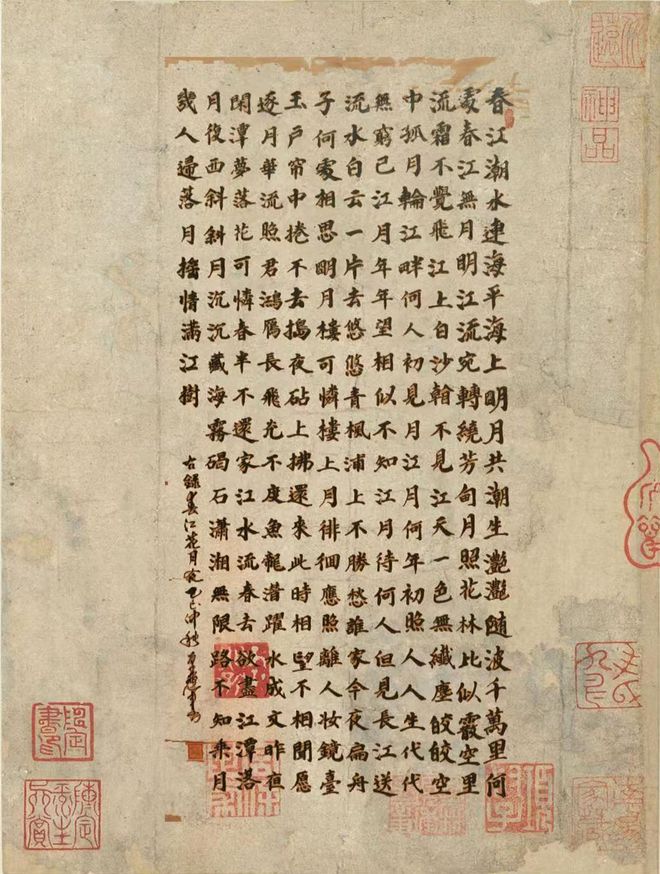 春江潮水連海平海上明月共潮生灧灧随波千萬里何
處春江無月明江流宛轉繞芳甸月照花林比似霰空里
流霜不覺飛江上白沙翰不見江天一色無纖塵皎皎空
中孤月輪江畔何人初見月江月何年初照人人生代代
無窮已江月年年望相似不知江月待何人但見長江送
流水白云一片去悠悠青楓浦上不勝愁誰家今夜扁舟
子何處相思明月樓可憐樓上月徘徊應照離人妝鏡臺
玉户帘中捲不去搗夜砧上拂還來此時相望不相聞愿
逐月華流照君鴻雁長飛光不度魚龍潛躍水成文昨夜
閑潭夢落花可憐春半不還家江水流春去欲盡江潭落
月復西斜斜月沉沉藏海霧碣石瀟湘無限路不知乘月
幾人歸落月摇情满江樹
古錄春江花月夜乙巳仲秋
神品